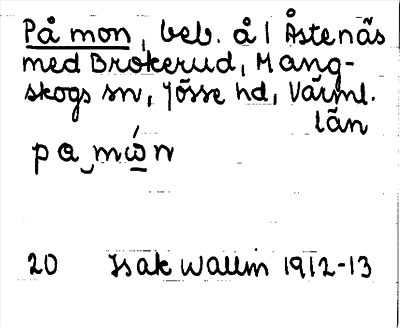 På mon, beb. å 1 Åstenäs
med Brokerud, Mang-
skogs sn, Jösse hd, Värml.
län
pa‿mώ̲n
20 Isak Wallin 1912-13